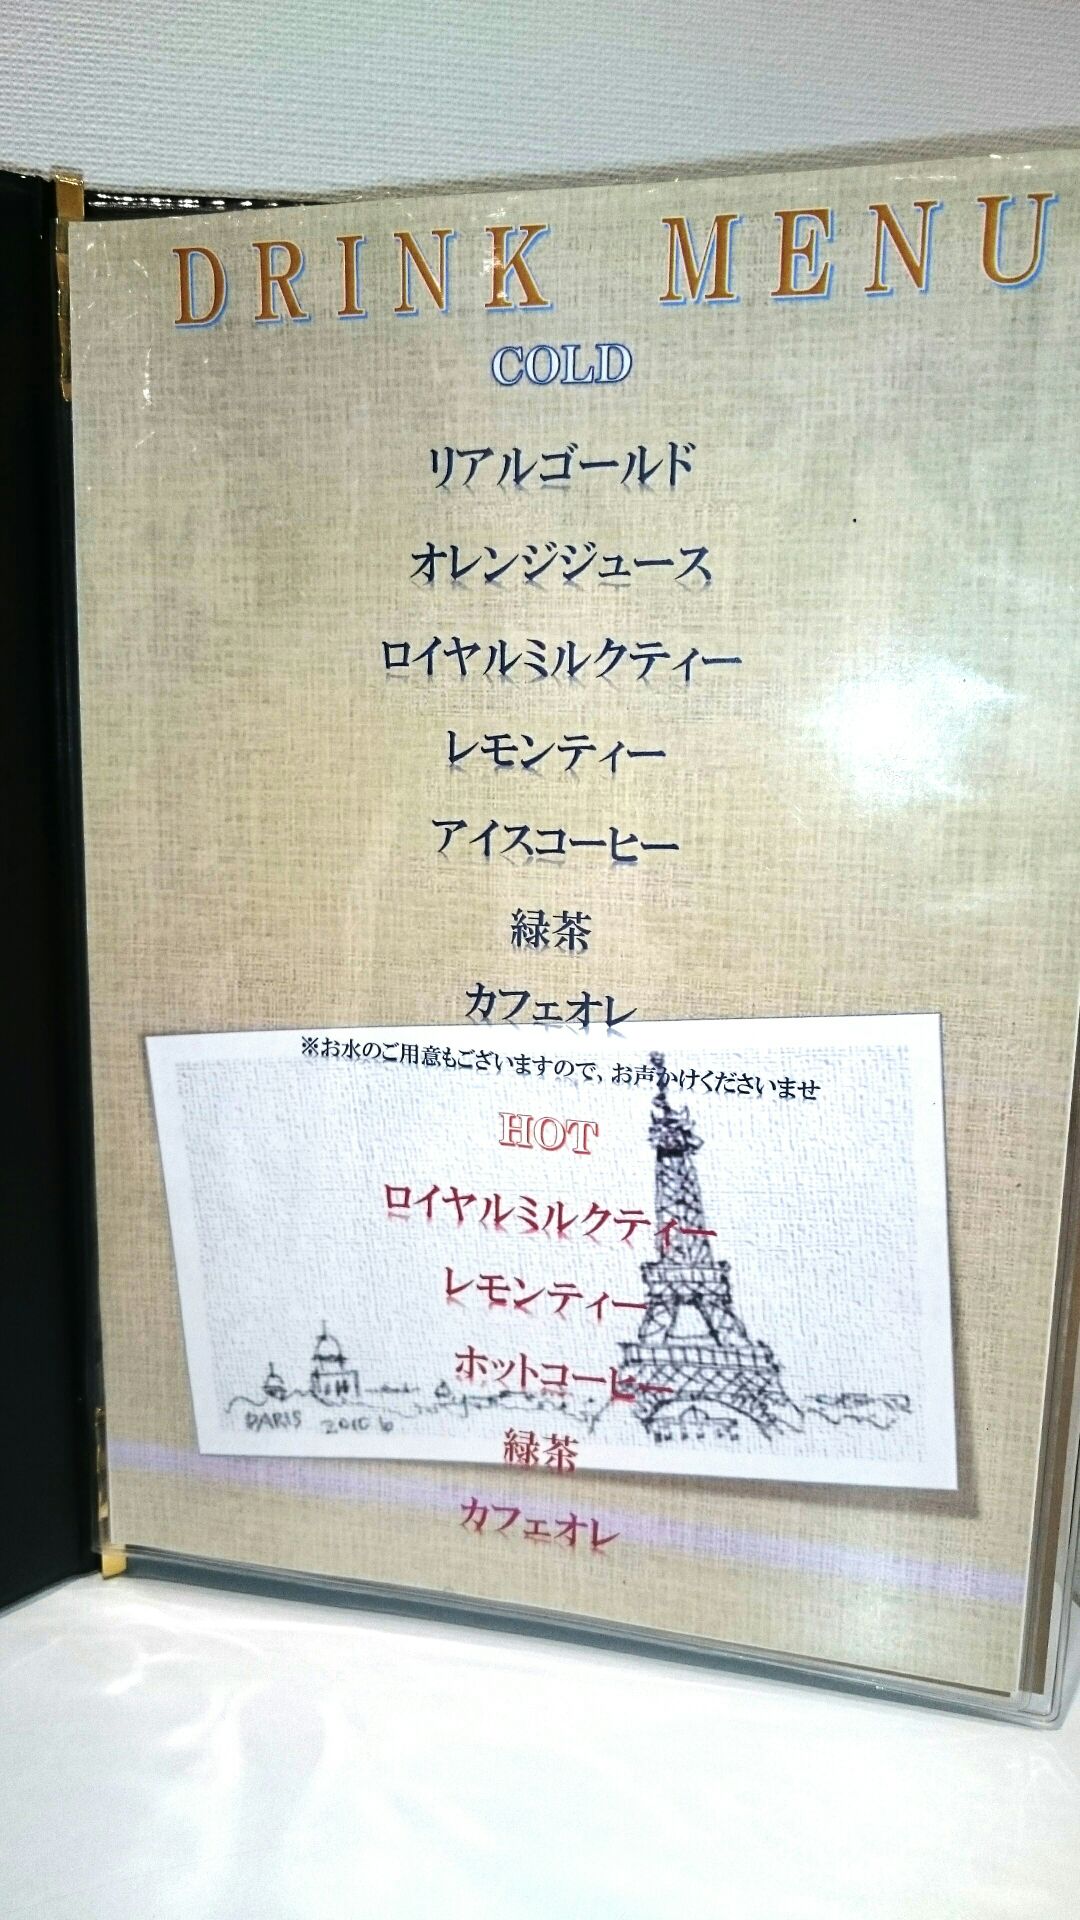 DRINK MENU
COLD
リアルゴールド
オレンジジュース
ロイヤルミルクティー
レモンティー
アイスコーヒー
緑茶
カフェオレ
※お水のご用意もございますので、お声かけくださいませ
HOT
ロイヤルミルクティー
レモンティー
ホットコーヒー
PARIS 2010 6
緑茶
カフェオレ